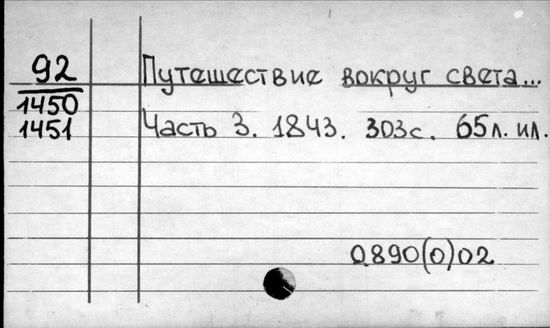 92 Путешествие вокруг света...
1450
1451 Часть 3. 1843. 303с. 65л. ил.
0.890(0)02